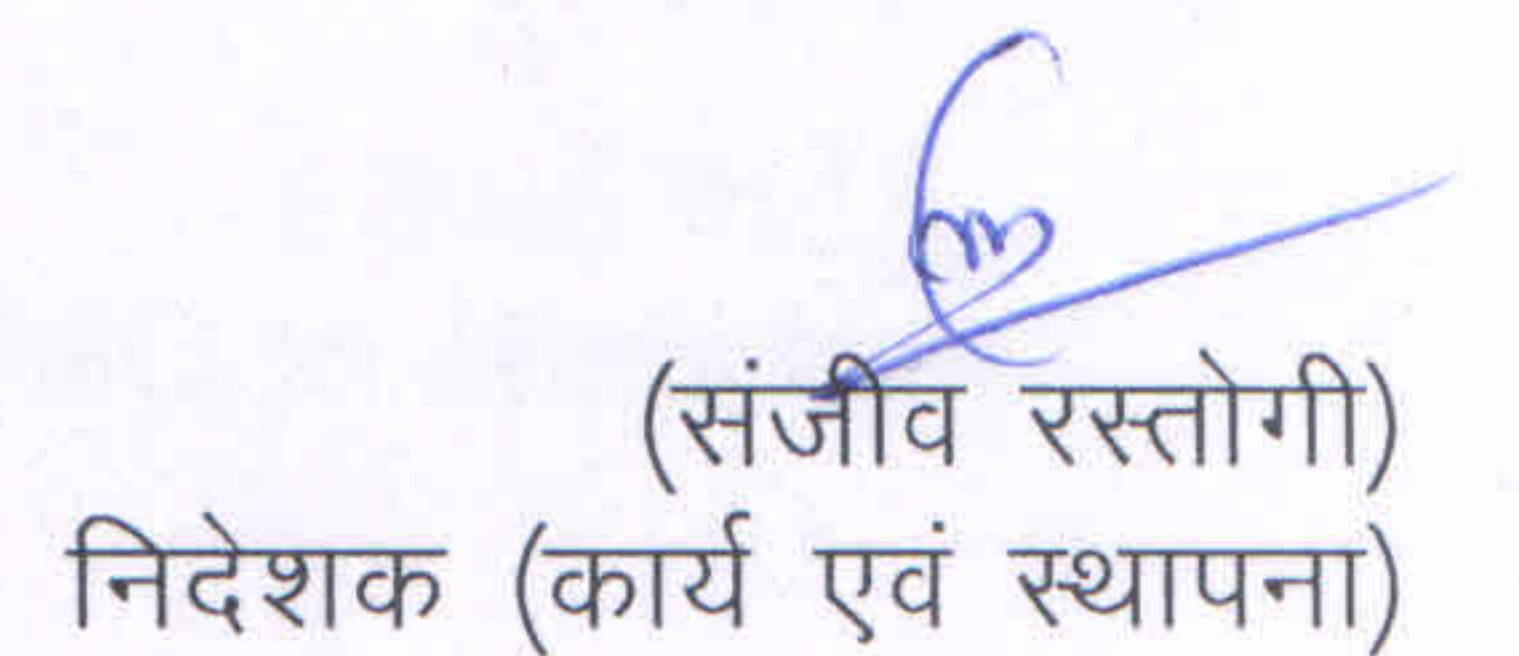 (संजीव रस्तोगी)
निदेशक (कार्य एवं स्थापना)